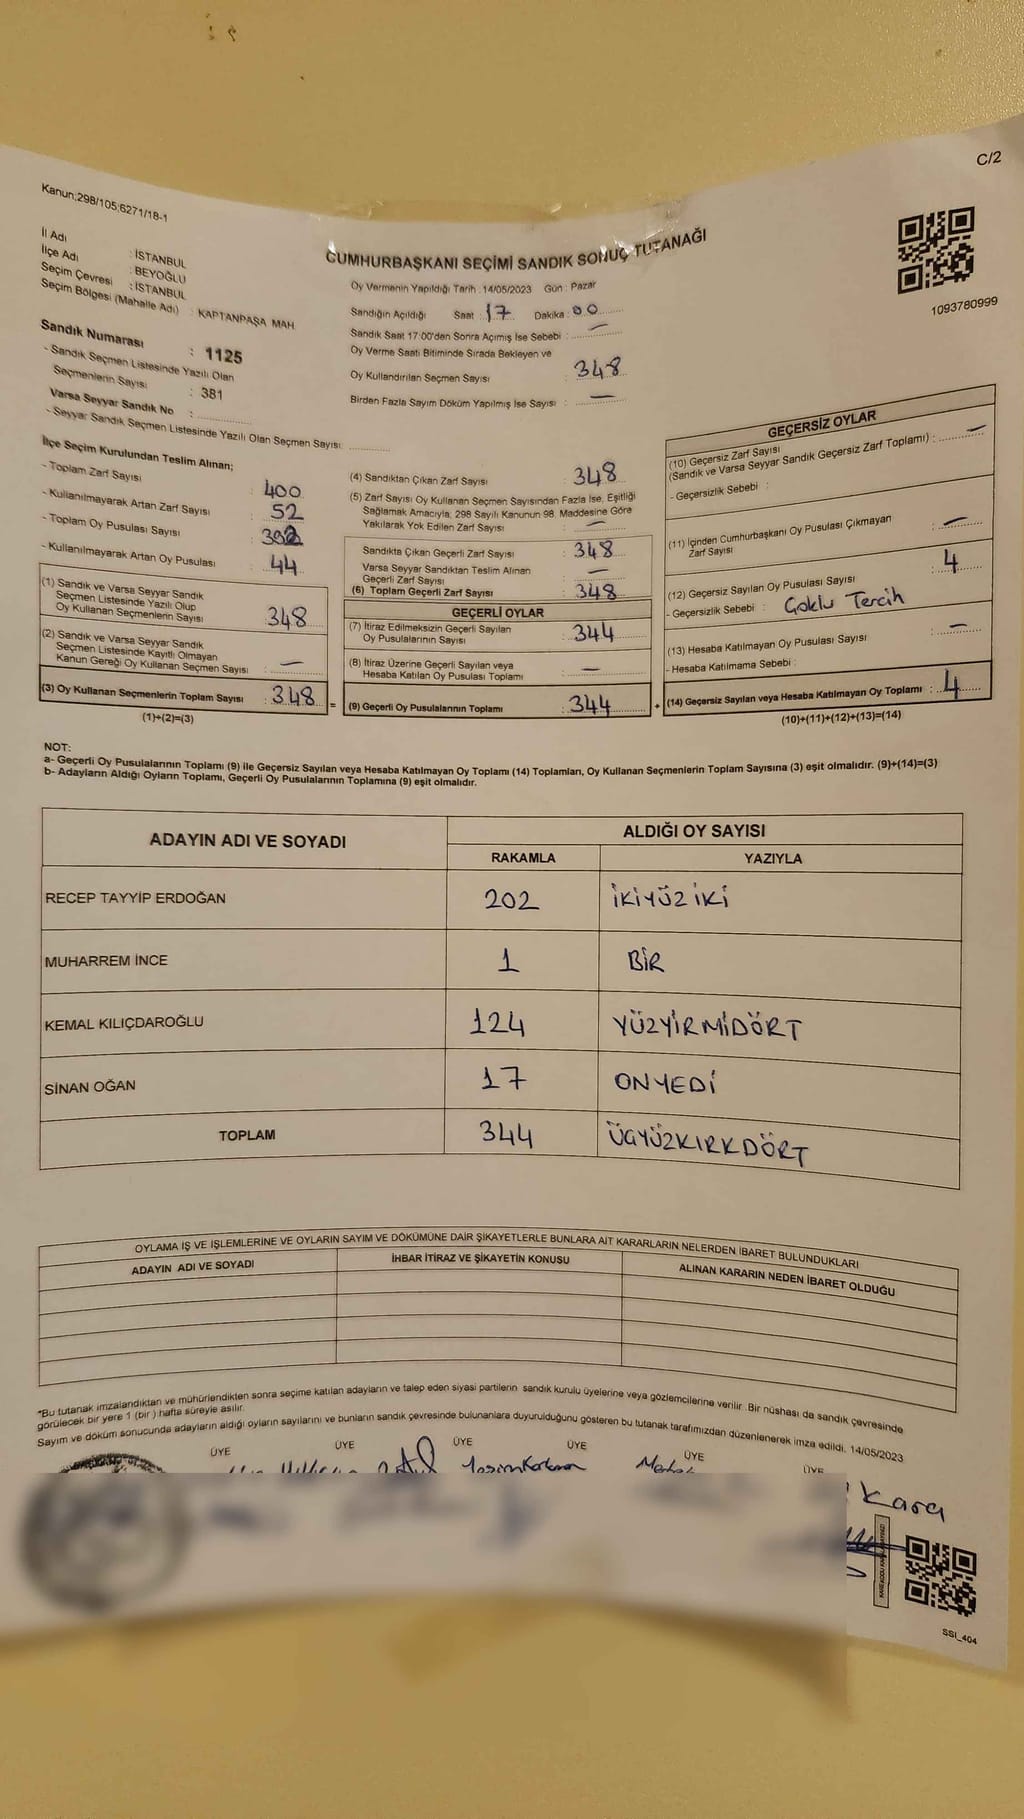 C/2
Kanun;298/105;6271/18-1
CUMHURBAŞKANI SEÇİMİ SANDIK SONUÇ TUTANAĞI
1093780999
İl Adı : İSTANBUL
İlçe Adı : BEYOĞLU
Seçim Çevresi : İSTANBUL
Seçim Bölgesi (Mahalle Adı) : KAPTANPAŞA MAH
Sandık Numarası : 1125
- Sandık Seçmen Listesinde Yazılı Olan
Seçmenlerin Sayısı : 381
Varsa Seyyar Sandık No :
- Seyyar Sandık Seçmen Listesinde Yazılı Olan Seçmen Sayısı:
Oy Vermenin Yapıldığı Tarih :14/05/2023 Gün : Pazar
Sandığın Açıldığı Saat :17 Dakika :00
Sandık Saat 17:00'den Sonra Açımış İse Sebebi : —
Oy Verme Saati Bitiminde Sırada Bekleyen ve
Oy Kullandırılan Seçmen Sayısı : 348
Birden Fazla Sayım Döküm Yapılmış İse Sayısı : —
İlçe Seçim Kurulundan Teslim Alınan;
- Toplam Zarf Sayısı : 400
- Kullanılmayarak Artan Zarf Sayısı : 52
- Toplam Oy Pusulası Sayısı :
- Kullanılmayarak Artan Oy Pusulası : 44
(1) Sandık ve Varsa Seyyar Sandık
Seçmen Listesinde Yazılı Olup
Oy Kullanan Seçmenlerin Sayısı : 348
(2) Sandık ve Varsa Seyyar Sandık
Seçmen Listesinde Kayıtlı Olmayan
Kanun Gereği Oy Kullanan Seçmen Sayısı : —
(3) Oy Kullanan Seçmenlerin Toplam Sayısı : 348 =
(1)+(2)=(3)
(4) Sandıktan Çıkan Zarf Sayısı : 348
(5) Zarf Sayısı Oy Kullanan Seçmen Sayısından Fazla İse, Eşitliği
Sağlamak Amacıyla, 298 Sayılı Kanunun 98. Maddesine Göre
Yakılarak Yok Edilen Zarf Sayısı : —
Sandıkta Çıkan Geçerli Zarf Sayısı : 348
Varsa Seyyar Sandıktan Teslim Alınan
Geçerli Zarf Sayısı : —
(6) Toplam Geçerli Zarf Sayısı : 348
GEÇERLİ OYLAR
(7) İtiraz Edilmeksizin Geçerli Sayılan
Oy Pusulalarının Sayısı : 344
(8) İtiraz Üzerine Geçerli Sayılan veya
Hesaba Katılan Oy Pusulası Toplamı : —
(9) Geçerli Oy Pusulalarının Toplamı : 344 +
GEÇERSİZ OYLAR
(10) Geçersiz Zarf Sayısı
(Sandık ve Varsa Seyyar Sandık Geçersiz Zarf Toplamı) : —
- Geçersizlik Sebebi :
(11) İçinden Cumhurbaşkanı Oy Pusulası Çıkmayan
Zarf Sayısı : —
(12) Geçersiz Sayılan Oy Pusulası Sayısı : 4
- Geçersizlik Sebebi : Çoklu Tercih
(13) Hesaba Katılmayan Oy Pusulası Sayısı : —
- Hesaba Katılmama Sebebi :
(14) Geçersiz Sayılan veya Hesaba Katılmayan Oy Toplamı : 4
(10)+(11)+(12)+(13)=(14)
NOT:
a- Geçerli Oy Pusulalarının Toplamı (9) ile Geçersiz Sayılan veya Hesaba Katılmayan Oy Toplamı (14) Toplamları, Oy Kullanan Seçmenlerin Toplam Sayısına (3) eşit olmalıdır. (9)+(14)=(3)
b- Adayların Aldığı Oyların Toplamı, Geçerli Oy Pusulalarının Toplamına (9) eşit olmalıdır.
ADAYIN ADI VE SOYADI ALDIĞI OY SAYISI
RAKAMLA YAZIYLA
RECEP TAYYİP ERDOĞAN 202 İKİYÜZ İKİ
MUHARREM İNCE 1 BİR
KEMAL KILIÇDAROĞLU 124 YÜZYİRMİDÖRT
SİNAN OĞAN 17 ONYEDİ
TOPLAM 344 ÜÇYÜZKIRKDÖRT
OYLAMA İŞ VE İŞLEMLERİNE VE OYLARIN SAYIM VE DÖKÜMÜNE DAİR ŞİKAYETLERLE BUNLARA AİT KARARLARIN NELERDEN İBARET BULUNDUKLARI
ADAYIN ADI VE SOYADI İHBAR İTİRAZ VE ŞİKAYETİN KONUSU ALINAN KARARIN NEDEN İBARET OLDUĞU
*Bu tutanak imzalandıktan ve mühürlendikten sonra seçime katılan adayların ve talep eden siyasi partilerin sandık kurulu üyelerine veya gözlemcilerine verilir. Bir nüshası da sandık çevresinde
görülecek bir yere 1 (bir ) hafta süreyle asılır.
Sayım ve döküm sonucunda adayların aldığı oyların sayılarını ve bunların sandık çevresinde bulunanlara duyurulduğunu gösteren bu tutanak tarafımızdan düzenlenerek imza edildi. 14/05/2023
ÜYE ÜYE ÜYE ÜYE ÜYE ÜYE
Kara
SSİ_404